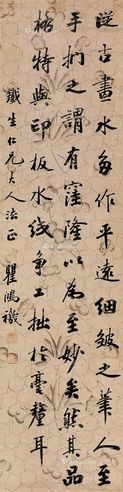 從古畫水多作平遠細皴之筆人至
手捫之謂有窪隆以為至妙矣然其品
格特與印板水紋爭工拙於毫釐耳
鐵生仁兄大人法正
瞿鴻禨